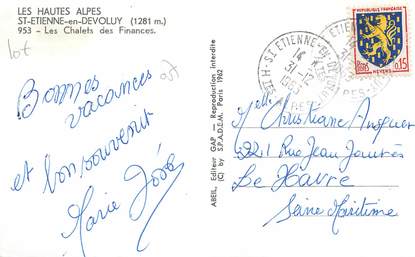 LES HAUTES ALPES
ST-ETIENNE-en-DEVOLUY (1281 m.)
953 - Les Chalets des Finances.
lot
Bonnes
vacances
et bon souvenir
Marie José
ABEIL, Editeur GAP — Reproduction interdite
(C) by S.P.A.D.E.M. Paris 1962
ST ETIENNE-EN-DEVOLUY
14
31-12
1963
REPUBLIQUE FRANÇAISE
POSTES
0,15
NEVERS
Melle Christiane
221 Rue Jean Jaurès
Le Havre
Seine Maritime